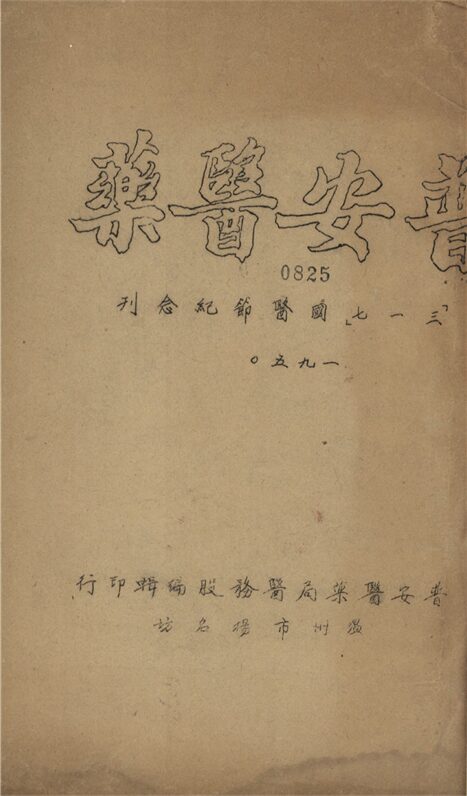 普安醫藥
0825
「三一七」國醫節紀念刊
一九五〇
普安醫藥局醫務股編輯印行
温州市揚名坊